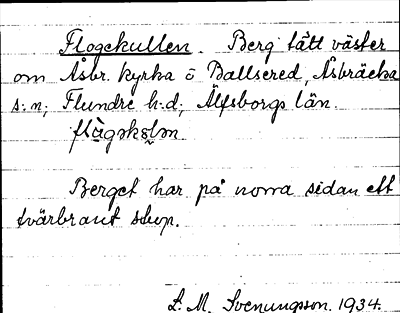 Flogekullen. Berg tätt väster
om Åsbr. kyrka ö Ballsered, Åsbräcka
s:n; Flundre h:d; Älfsborgs län.
Berget har på norra sidan ett
tvärbrant stup.
L. M. Svenungsson. 1934.